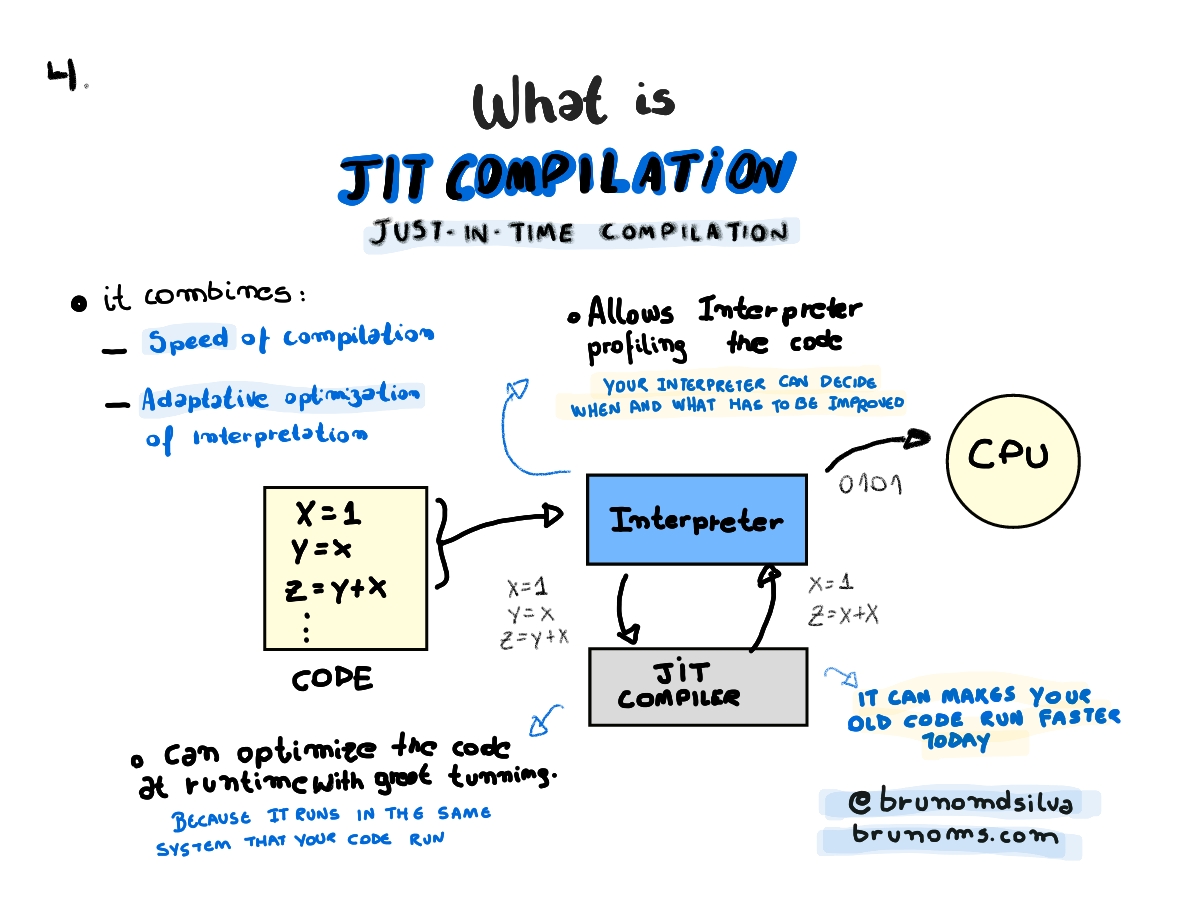 4.
What is
JIT COMPILATION
JUST-IN-TIME COMPILATION
it combines:
— Speed of compilation
— Adaptative optimization
of interpretation
Allows Interpreter
profiling the code
YOUR INTERPRETER CAN DECIDE
WHEN AND WHAT HAS TO BE IMPROVED
X=1
Y=x
Z=Y+X
CODE
Interpreter
0101
CPU
X=1
Y=X
Z=y+X
X=1
Z=X+X
JiT
COMPILER
IT CAN MAKES YOUR
OLD CODE RUN FASTER
TODAY
Can optimize the code
at runtime with great tunning.
BECAUSE IT RUNS IN THE SAME
SYSTEM THAT YOUR CODE RUN
@brunomdsilva
brunoms.com